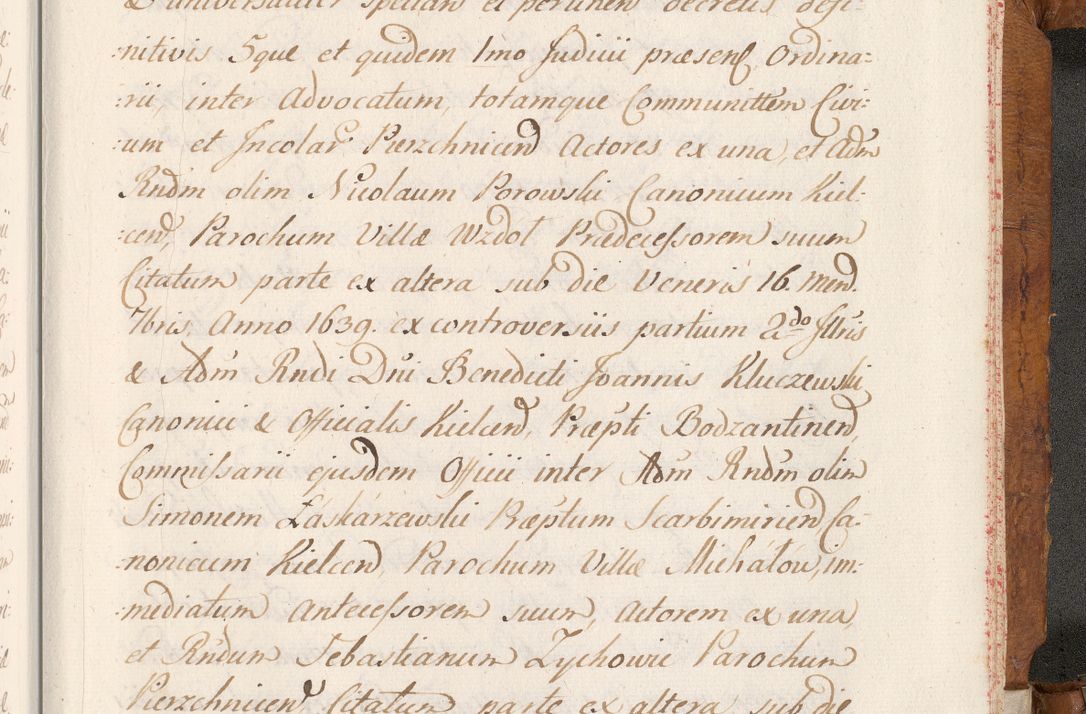 & universaliter spectan et pertinen decretis defi-
:nitivis 5que et quidem 1mo Judicii præsenς Ordina=
:rii, inter Advocatum, totamque Communittem Civi:
:um et Incolar Pierzchnicen Actores ex una, et Adm
Rndm olim Nicolaum Porowski Canonicum Kiel:
:cen, Parochum Villæ Wzdoł Prædecessorem suum
Citatum parte ex altera sub die Veneris 16. Men.
7bris. Anno 1639. ex controversiis partium 2do Illris
& Adm Rndi Dni Benedicti Joannis Kluczewski
Canonici & Officialis Kielcen, Præpti Bodzantinen,
Commissarii ejusdem Officii inter Adm Rndm olim
Simonem Łáskárzewski Præptum Scarbimirien Ca-
:nonicum Kielcen, Parochum Villæ Michałów, im:
:mediatum Antecessorem suum, Actorem ex una,
et Rndum Sebastianum Zychowic Parochum
Pierzchnicen Citatum parte ex altera sub die